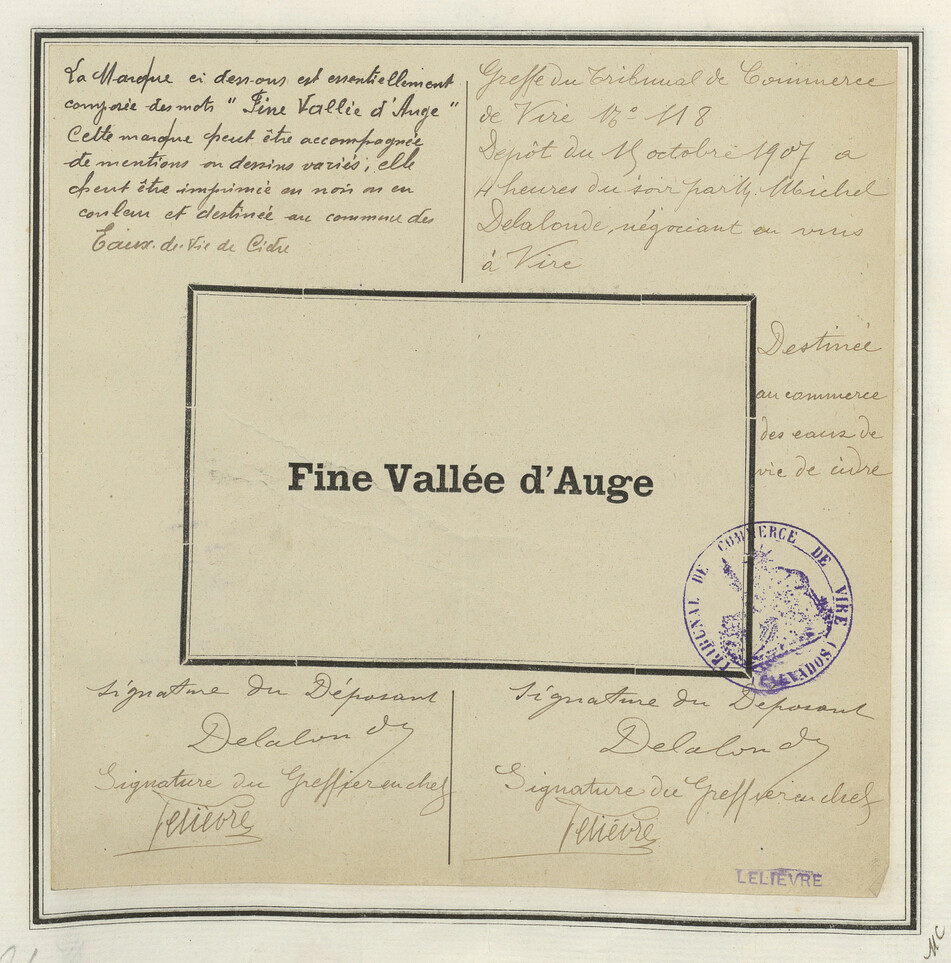 La Marque ci dessous est essentiellement
composée des mots " Fine Vallée d'Auge "
Cette marque peut être accompagnée
de mentions ou dessins variés, elle
peut être imprimée en noir ou en
couleur et destinée au commerce des
Eaux-de-Vie de Cidre
Greffe du Tribunal de Commerce
de Vire No 118
Depôt du 15 octobre 1907 a
4 heures du soir par M. Michel
Delalonde, négociant en vins
à Vire
Destinée
au commerce
des eaux de
vie de cidre
Fine Vallée d'Auge
TRIBUNAL DE COMMERCE DE VIRE (CALVADOS)
Signature du Déposant
Delalonde
Signature du Greffier en chef
Lelièvre
Signature du Déposant
Delalonde
Signature du Greffier en chef
Lelièvre
LELIEVRE
MC